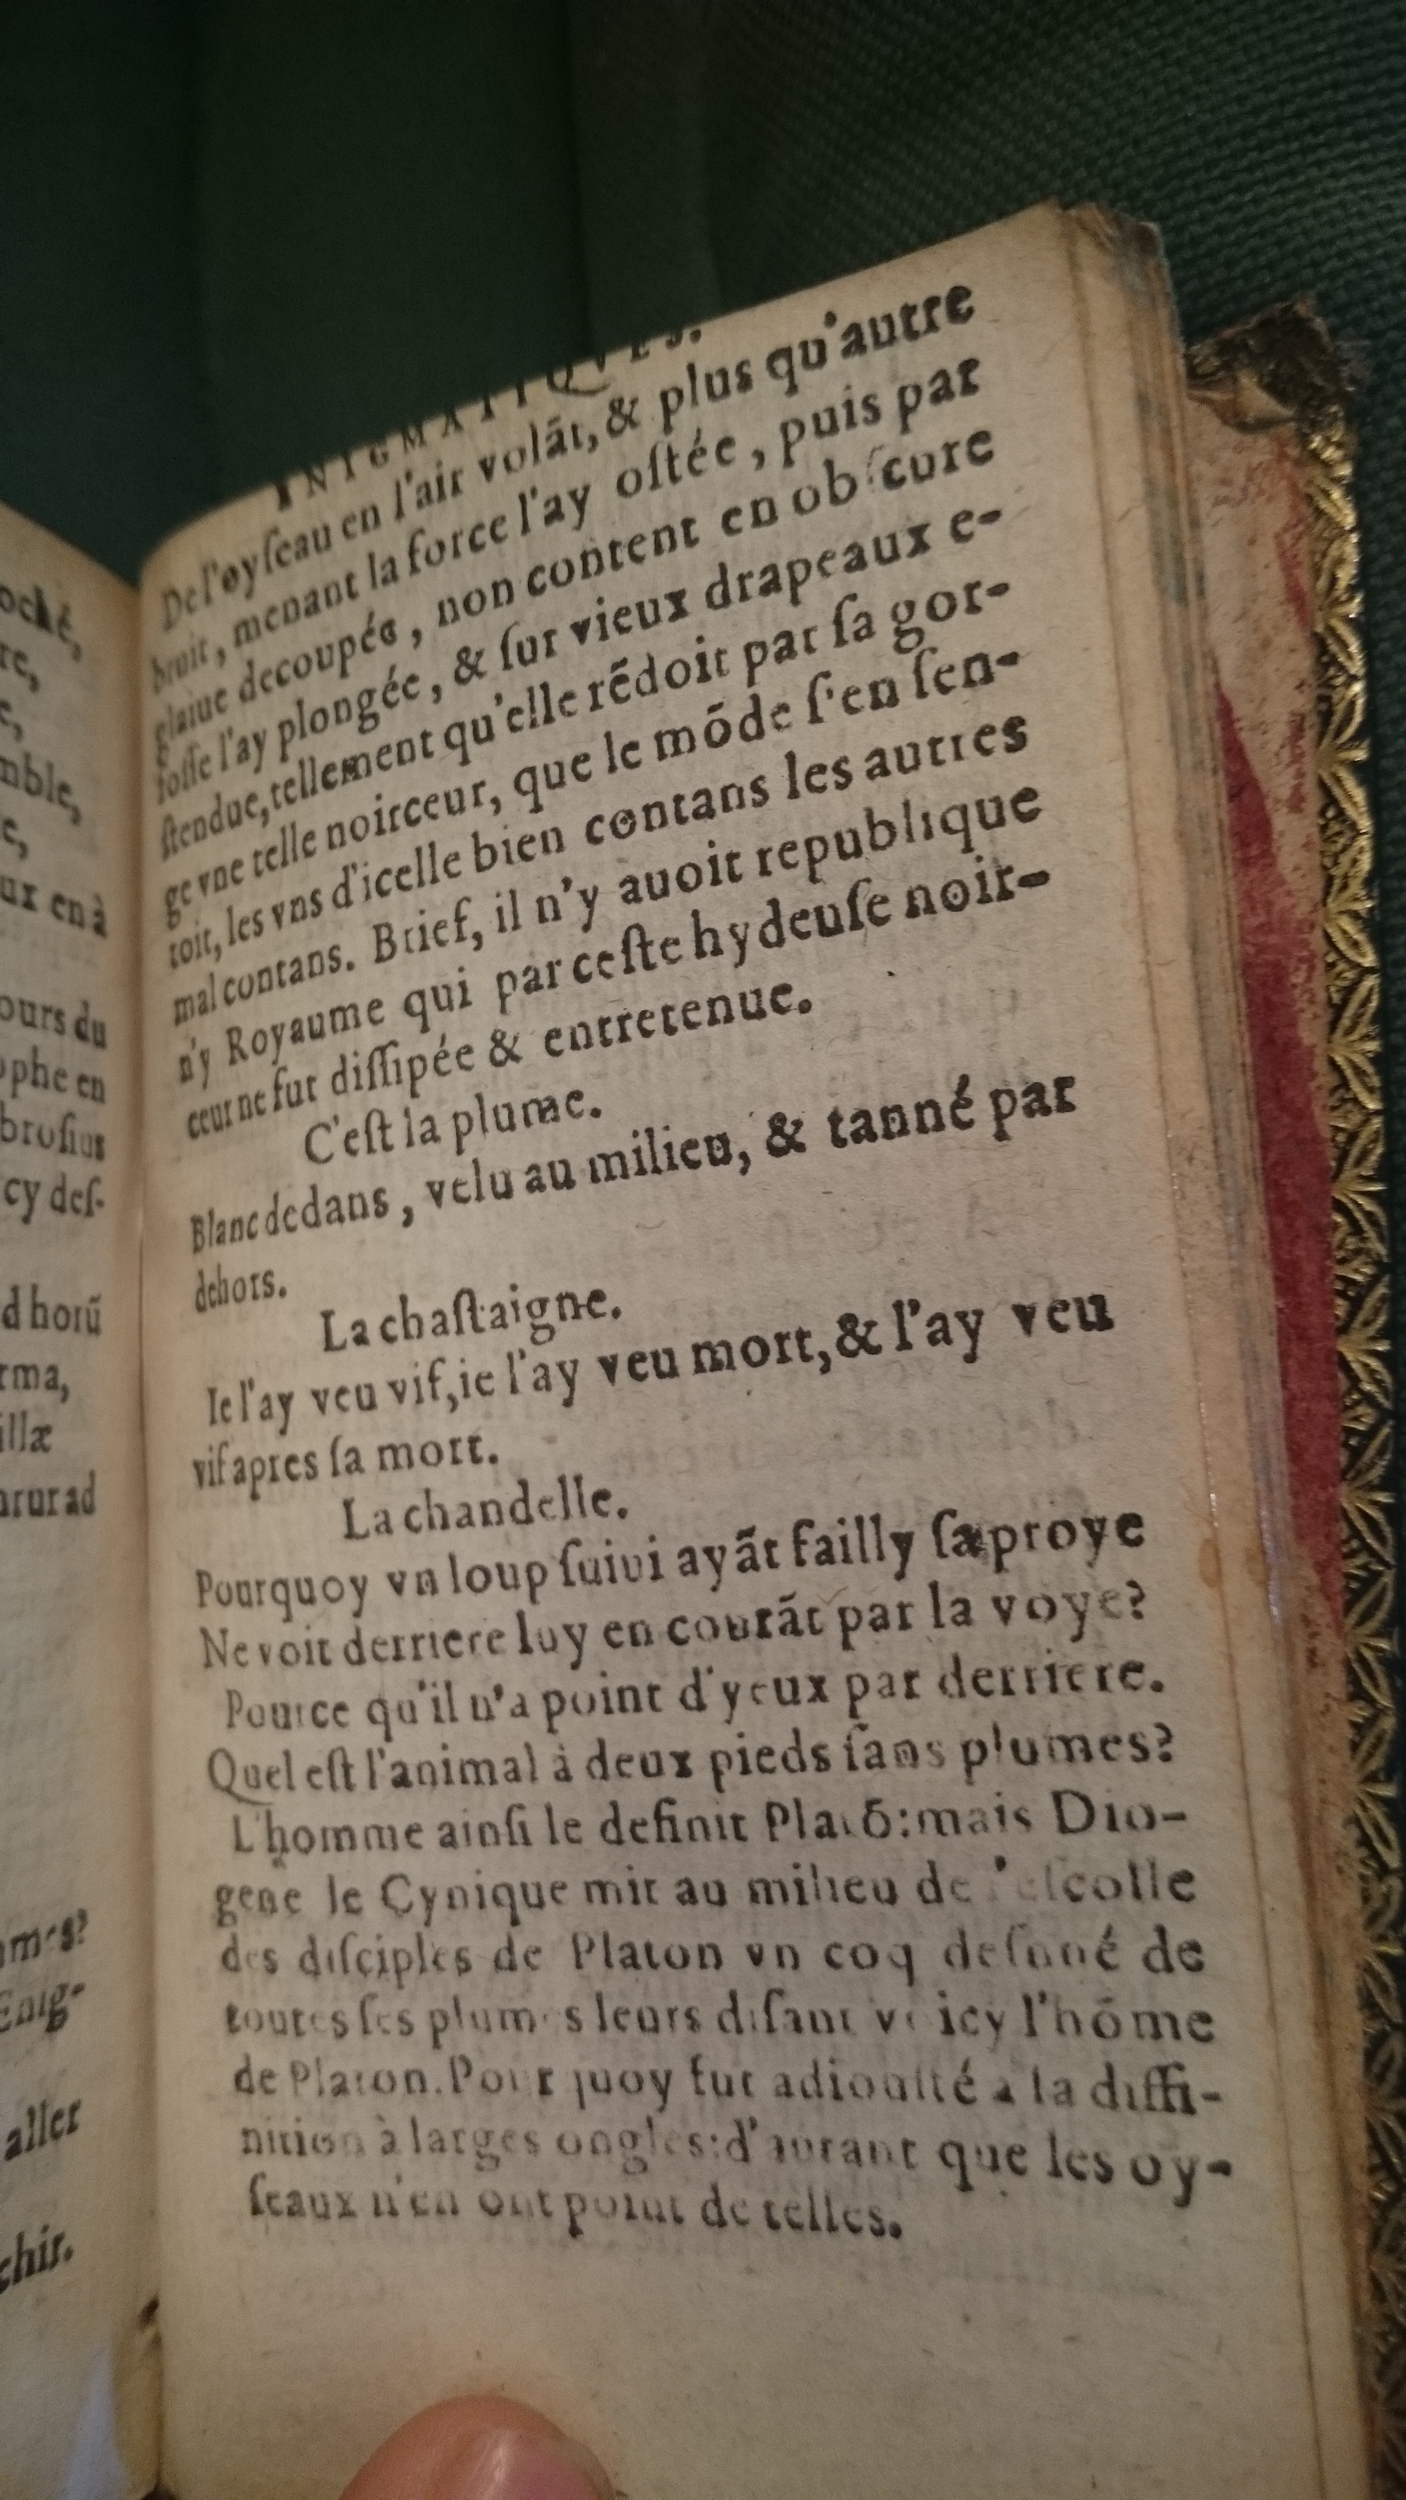 oché,
re,
e,
mble,
e,
ux en à
ours du
ophe en
brosius
cy des-
d horũ
rma,
illæ
rur ad
mes?
Enig-
aller
chir.
INIGMATIQVES.
De l'oyſeau en l'air volãt, & plus qu'autre
bruit, menant la force l'ay oſtée, puis par
glaiue decoupée, non content en obſcure
foſſe l'ay plongée, & ſur vieux drapeaux e-
ſtendue, tellement qu'elle rẽdoit par ſa gor-
ge vne telle noirceur, que le mõde ſ'en ſen-
toit, les vns d'icelle bien contans les autres
mal contans. Brief, il n'y auoit republique
n'y Royaume qui par ceſte hydeuſe noir-
ceur ne fut diſſipée & entretenue.
C'eſt la plume.
Blanc dedans, velu au milieu, & tanné par
dehors.
La chaſtaigne.
Ie l'ay veu vif, ie l'ay veu mort, & l'ay veu
vif apres ſa mort.
La chandelle.
Pourquoy vn loup ſuiui ayãt failly ſa proye
Ne voit derriere luy en courãt par la voye?
Pource qu'il n'a point d'yeux par derriere.
Quel eſt l'animal à deux pieds ſans plumes?
L'homme ainſi le definit Platõ: mais Dio-
gene le Cynique mit au milieu de l'eſcolle
des diſciples de Platon vn coq deſnué de
toutes ſes plumes leurs diſant voicy l'hõme
de Platon. Pourquoy fut adiouſté a la diffi-
nition à larges ongles: d'autant que les oy-
ſeaux n'en ont point de telles.